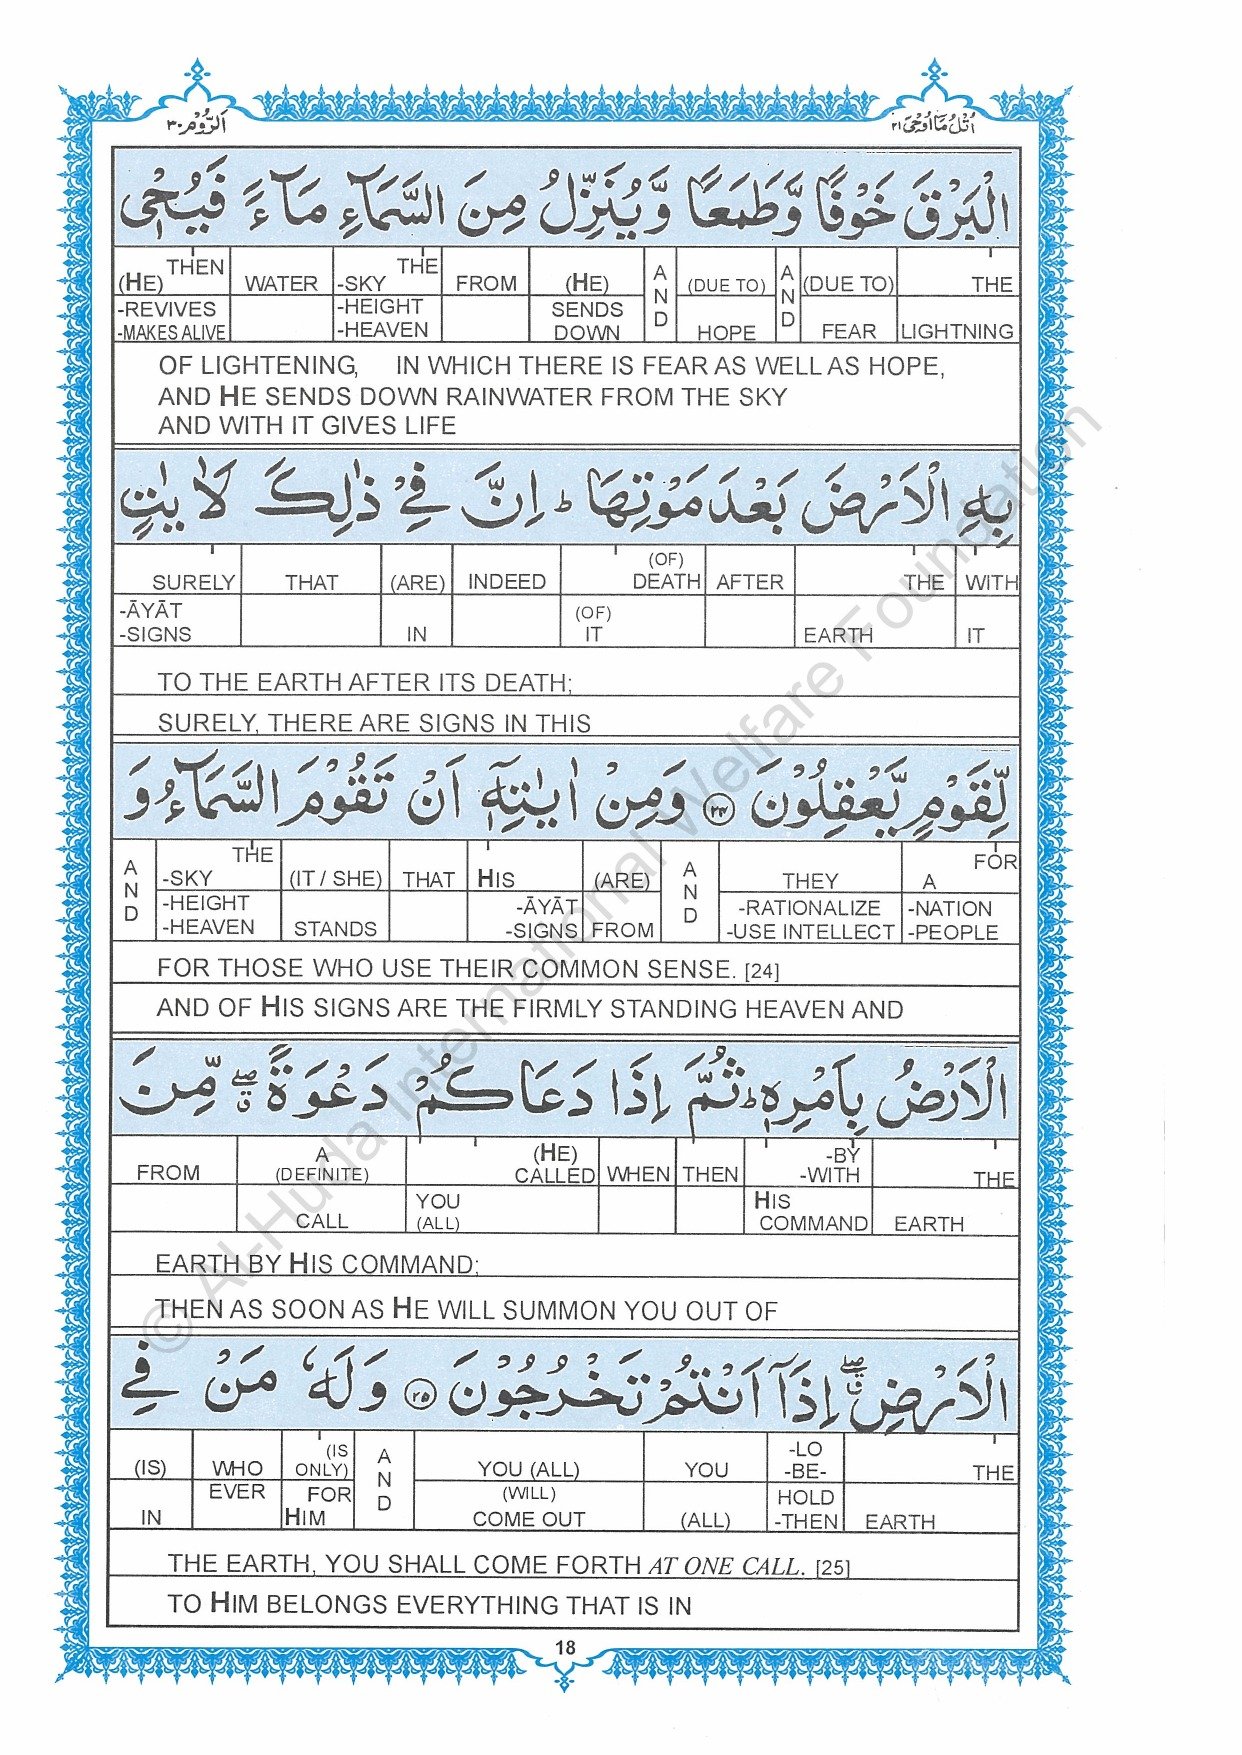 اَلرُّوْم ٣٠
اُتْلُ مَا اُوْحِيَ ٢١
الْبَرْقَ خَوْفًا وَّطَمَعًا وَّيُنَزِّلُ مِنَ السَّمَآءِ مَآءً فَيُحْيٖ
THEN THE
(HE) WATER -SKY FROM (HE) A N D (DUE TO) A N D (DUE TO) THE
-REVIVES -HEIGHT SENDS
-MAKES ALIVE -HEAVEN DOWN HOPE FEAR LIGHTNING
OF LIGHTENING, IN WHICH THERE IS FEAR AS WELL AS HOPE,
AND HE SENDS DOWN RAINWATER FROM THE SKY
AND WITH IT GIVES LIFE
بِهِ الْاَرْضَ بَعْدَ مَوْتِهَا ؕ اِنَّ فِيْ ذٰلِكَ لَاٰيٰتٍ
(OF)
SURELY THAT (ARE) INDEED DEATH AFTER THE WITH
-ĀYĀT (OF)
-SIGNS IN IT EARTH IT
TO THE EARTH AFTER ITS DEATH;
SURELY, THERE ARE SIGNS IN THIS
لِّقَوْمٍ يَّعْقِلُوْنَ ﴿٢٤﴾ وَمِنْ اٰيٰتِهٖٓ اَنْ تَقُوْمَ السَّمَآءُ وَ
A N D THE A N D FOR
-SKY (IT / SHE) THAT HIS (ARE) THEY A
-HEIGHT -ĀYĀT -RATIONALIZE -NATION
-HEAVEN STANDS -SIGNS FROM -USE INTELLECT -PEOPLE
FOR THOSE WHO USE THEIR COMMON SENSE. [24]
AND OF HIS SIGNS ARE THE FIRMLY STANDING HEAVEN AND
الْاَرْضُ بِاَمْرِهٖ ؕ ثُمَّ اِذَا دَعَاكُمْ دَعْوَةً ۖ ق مِّنَ
A (HE) -BY
FROM (DEFINITE) CALLED WHEN THEN -WITH THE
YOU HIS
CALL (ALL) COMMAND EARTH
EARTH BY HIS COMMAND;
THEN AS SOON AS HE WILL SUMMON YOU OUT OF
الْاَرْضِ ۖ ق اِذَآ اَنْتُمْ تَخْرُجُوْنَ ﴿٢٥﴾ وَلَهٗ مَنْ فِي
(IS A N D -LO
(IS) WHO ONLY) YOU (ALL) YOU -BE- THE
EVER FOR (WILL) HOLD
IN HIM COME OUT (ALL) -THEN EARTH
THE EARTH, YOU SHALL COME FORTH AT ONE CALL. [25]
TO HIM BELONGS EVERYTHING THAT IS IN
18
© Al-Huda International Welfare Foundation